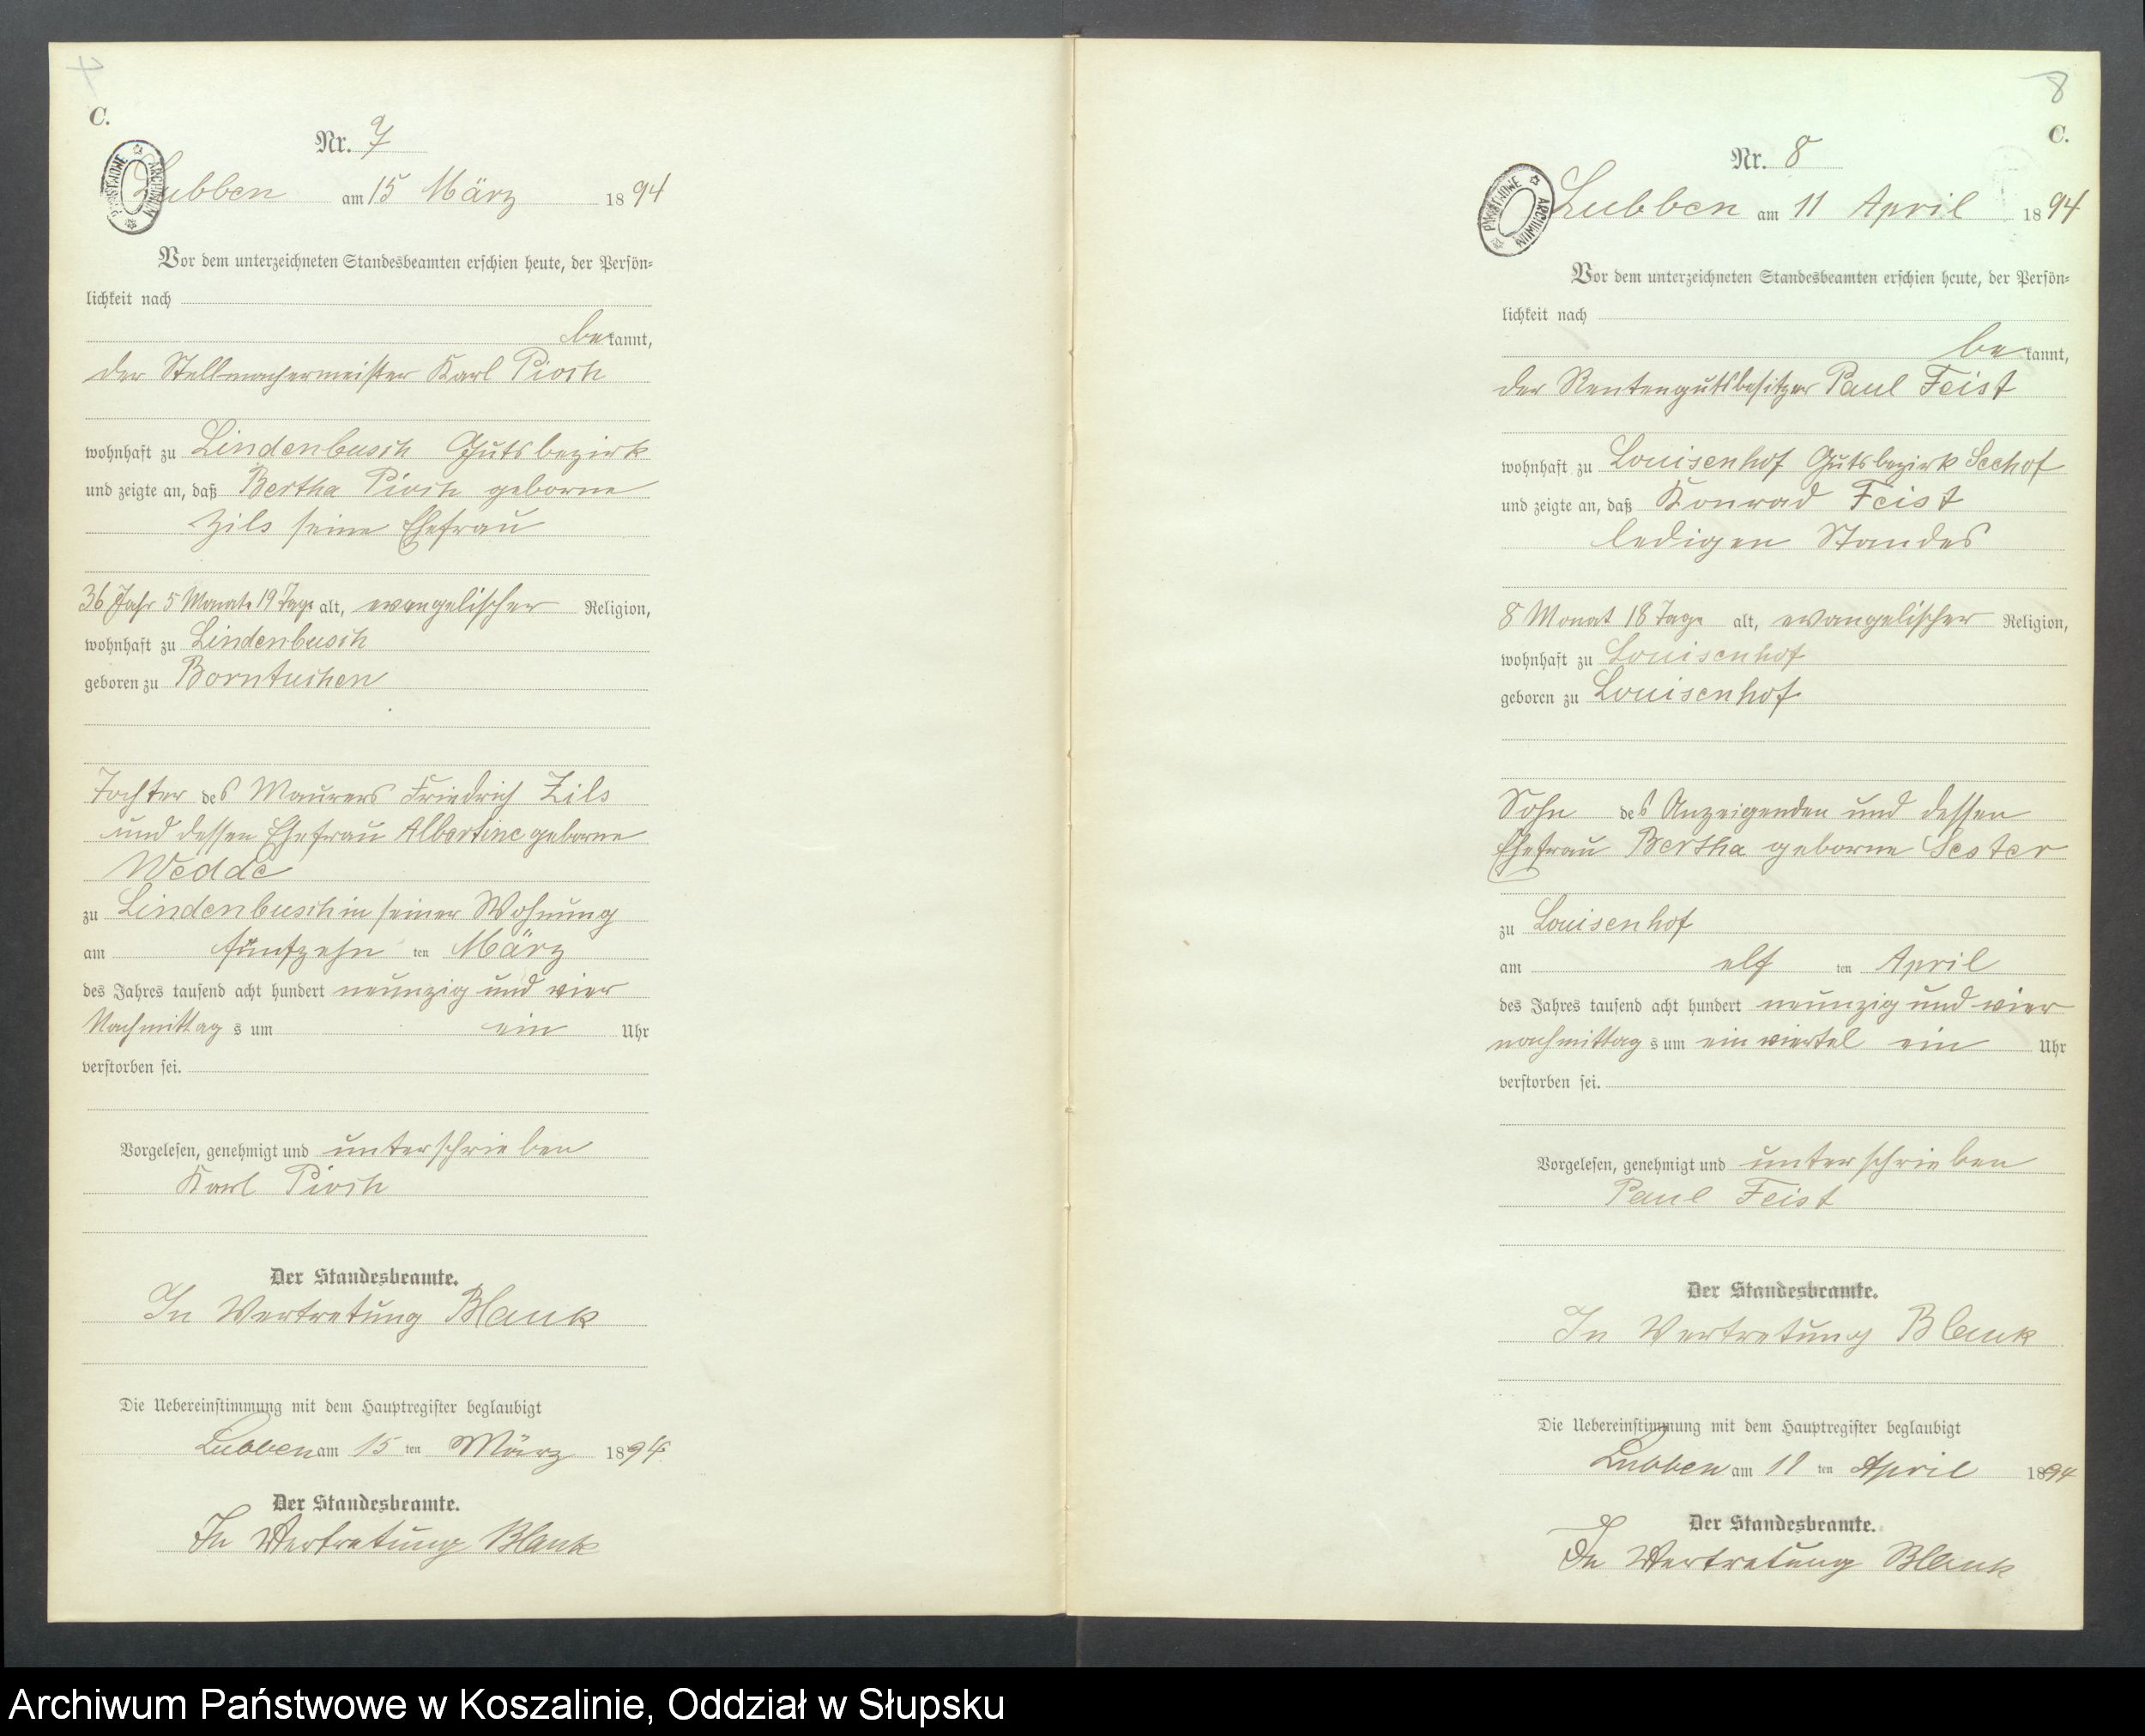 4
C.
Nr. 7
ARCHIWUM PAŃSTWOWE
Lubben am 15 März 1894
Vor dem unterzeichneten Standesbeamten erschien heute, der Persön-
lichkeit nach
bekannt,
der Stellmachermeister Karl Pioch
wohnhaft zu Lindenbusch Gutsbezirk
und zeigte an, daß Bertha Pioch geborne
Zils seine Ehefrau
36 Jahr 5 Monate 19 Tage alt, evangelischer Religion,
wohnhaft zu Lindenbusch
geboren zu Borntuchen
Tochter des Maurers Friedrich Zils
und dessen Ehefrau Albertine geborne
Wedde
zu Lindenbusch in seiner Wohnung
am fünfzehn ten März
des Jahres tausend acht hundert neunzig und vier
Nachmittag s um ein Uhr
verstorben sei.
Vorgelesen, genehmigt und unterschrieben
Karl Pioch
Der Standesbeamte.
In Vertretung Blank
Die Uebereinstimmung mit dem Hauptregister beglaubigt
Lubben am 15 ten März 1894.
Der Standesbeamte.
In Vertretung Blank
8
C.
Nr. 8
ARCHIWUM PAŃSTWOWE
Lubben am 11 April 1894
Vor dem unterzeichneten Standesbeamten erschien heute, der Persön-
lichkeit nach
bekannt,
der Rentengutsbesitzer Paul Feist
wohnhaft zu Louisenhof Gutsbezirk Seehof
und zeigte an, daß Konrad Feist
ledigen Standes
8 Monat 18 Tage alt, evangelischer Religion,
wohnhaft zu Louisenhof
geboren zu Louisenhof
Sohn des Anzeigenden und dessen
Ehefrau Bertha geborne Sester
zu Louisenhof
am elf ten April
des Jahres tausend acht hundert neunzig und vier
nachmittag s um ein viertel ein Uhr
verstorben sei.
Vorgelesen, genehmigt und unterschrieben
Paul Feist
Der Standesbeamte.
In Vertretung Blank
Die Uebereinstimmung mit dem Hauptregister beglaubigt
Lubben am 11 ten April 1894
Der Standesbeamte.
In Vertretung Blank
Archiwum Państwowe w Koszalinie, Oddział w Słupsku